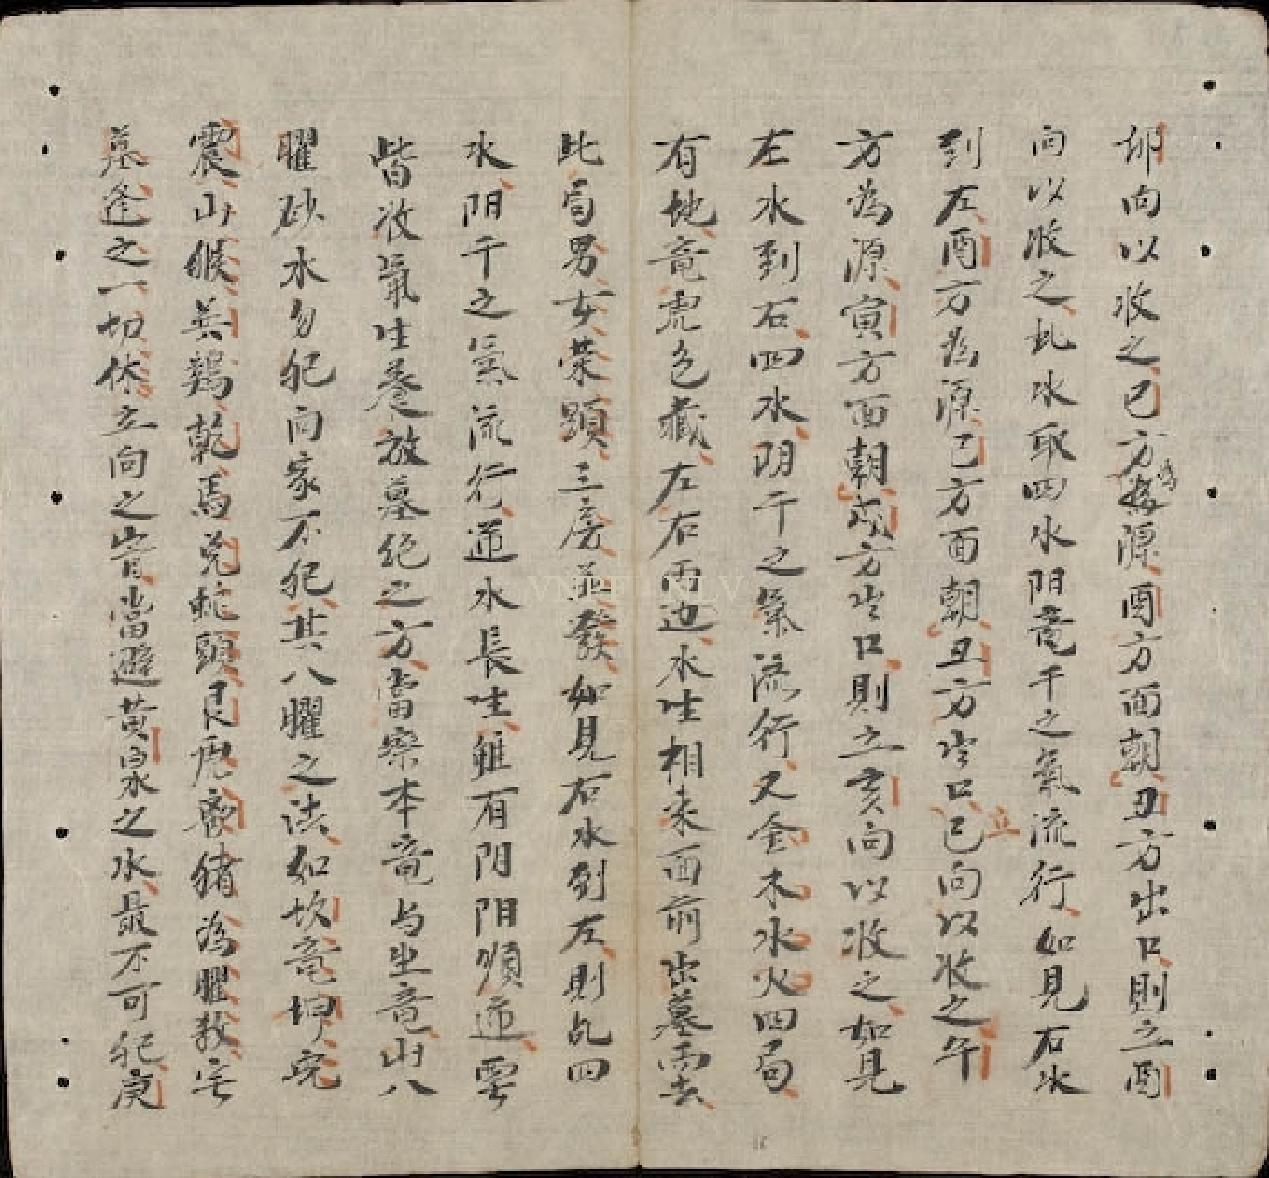 卯向以收之巳方為源酉方面朝丑方出口則立酉
向以收之此水取四水阳竜干之氣流行如見右水
到左酉方為源巳方面朝丑方出口立巳向以收之午
方為源寅方面朝戌方出口則立亥向以收之如見
左水到右四水阴干之氣流行又金木水火四局
有地竜虎包藏左右两边水生相来面前出墓而去
此局男女荣顕三房並發如見右水到左則乱四
水阳干之氣流行逆水長生雖有阴阳順逆要
皆收氣生养放墓绝之方當察本竜与坐竜山八
曜砂水勿犯向家不犯其八曜之法如坎竜坤兔
震山猴巽鷄乾馬兌蛇頭艮虎离猪為曜杀宅
墓逢之一切休立向之皆當避黄泉之水最不可犯庚
VNPF NLV